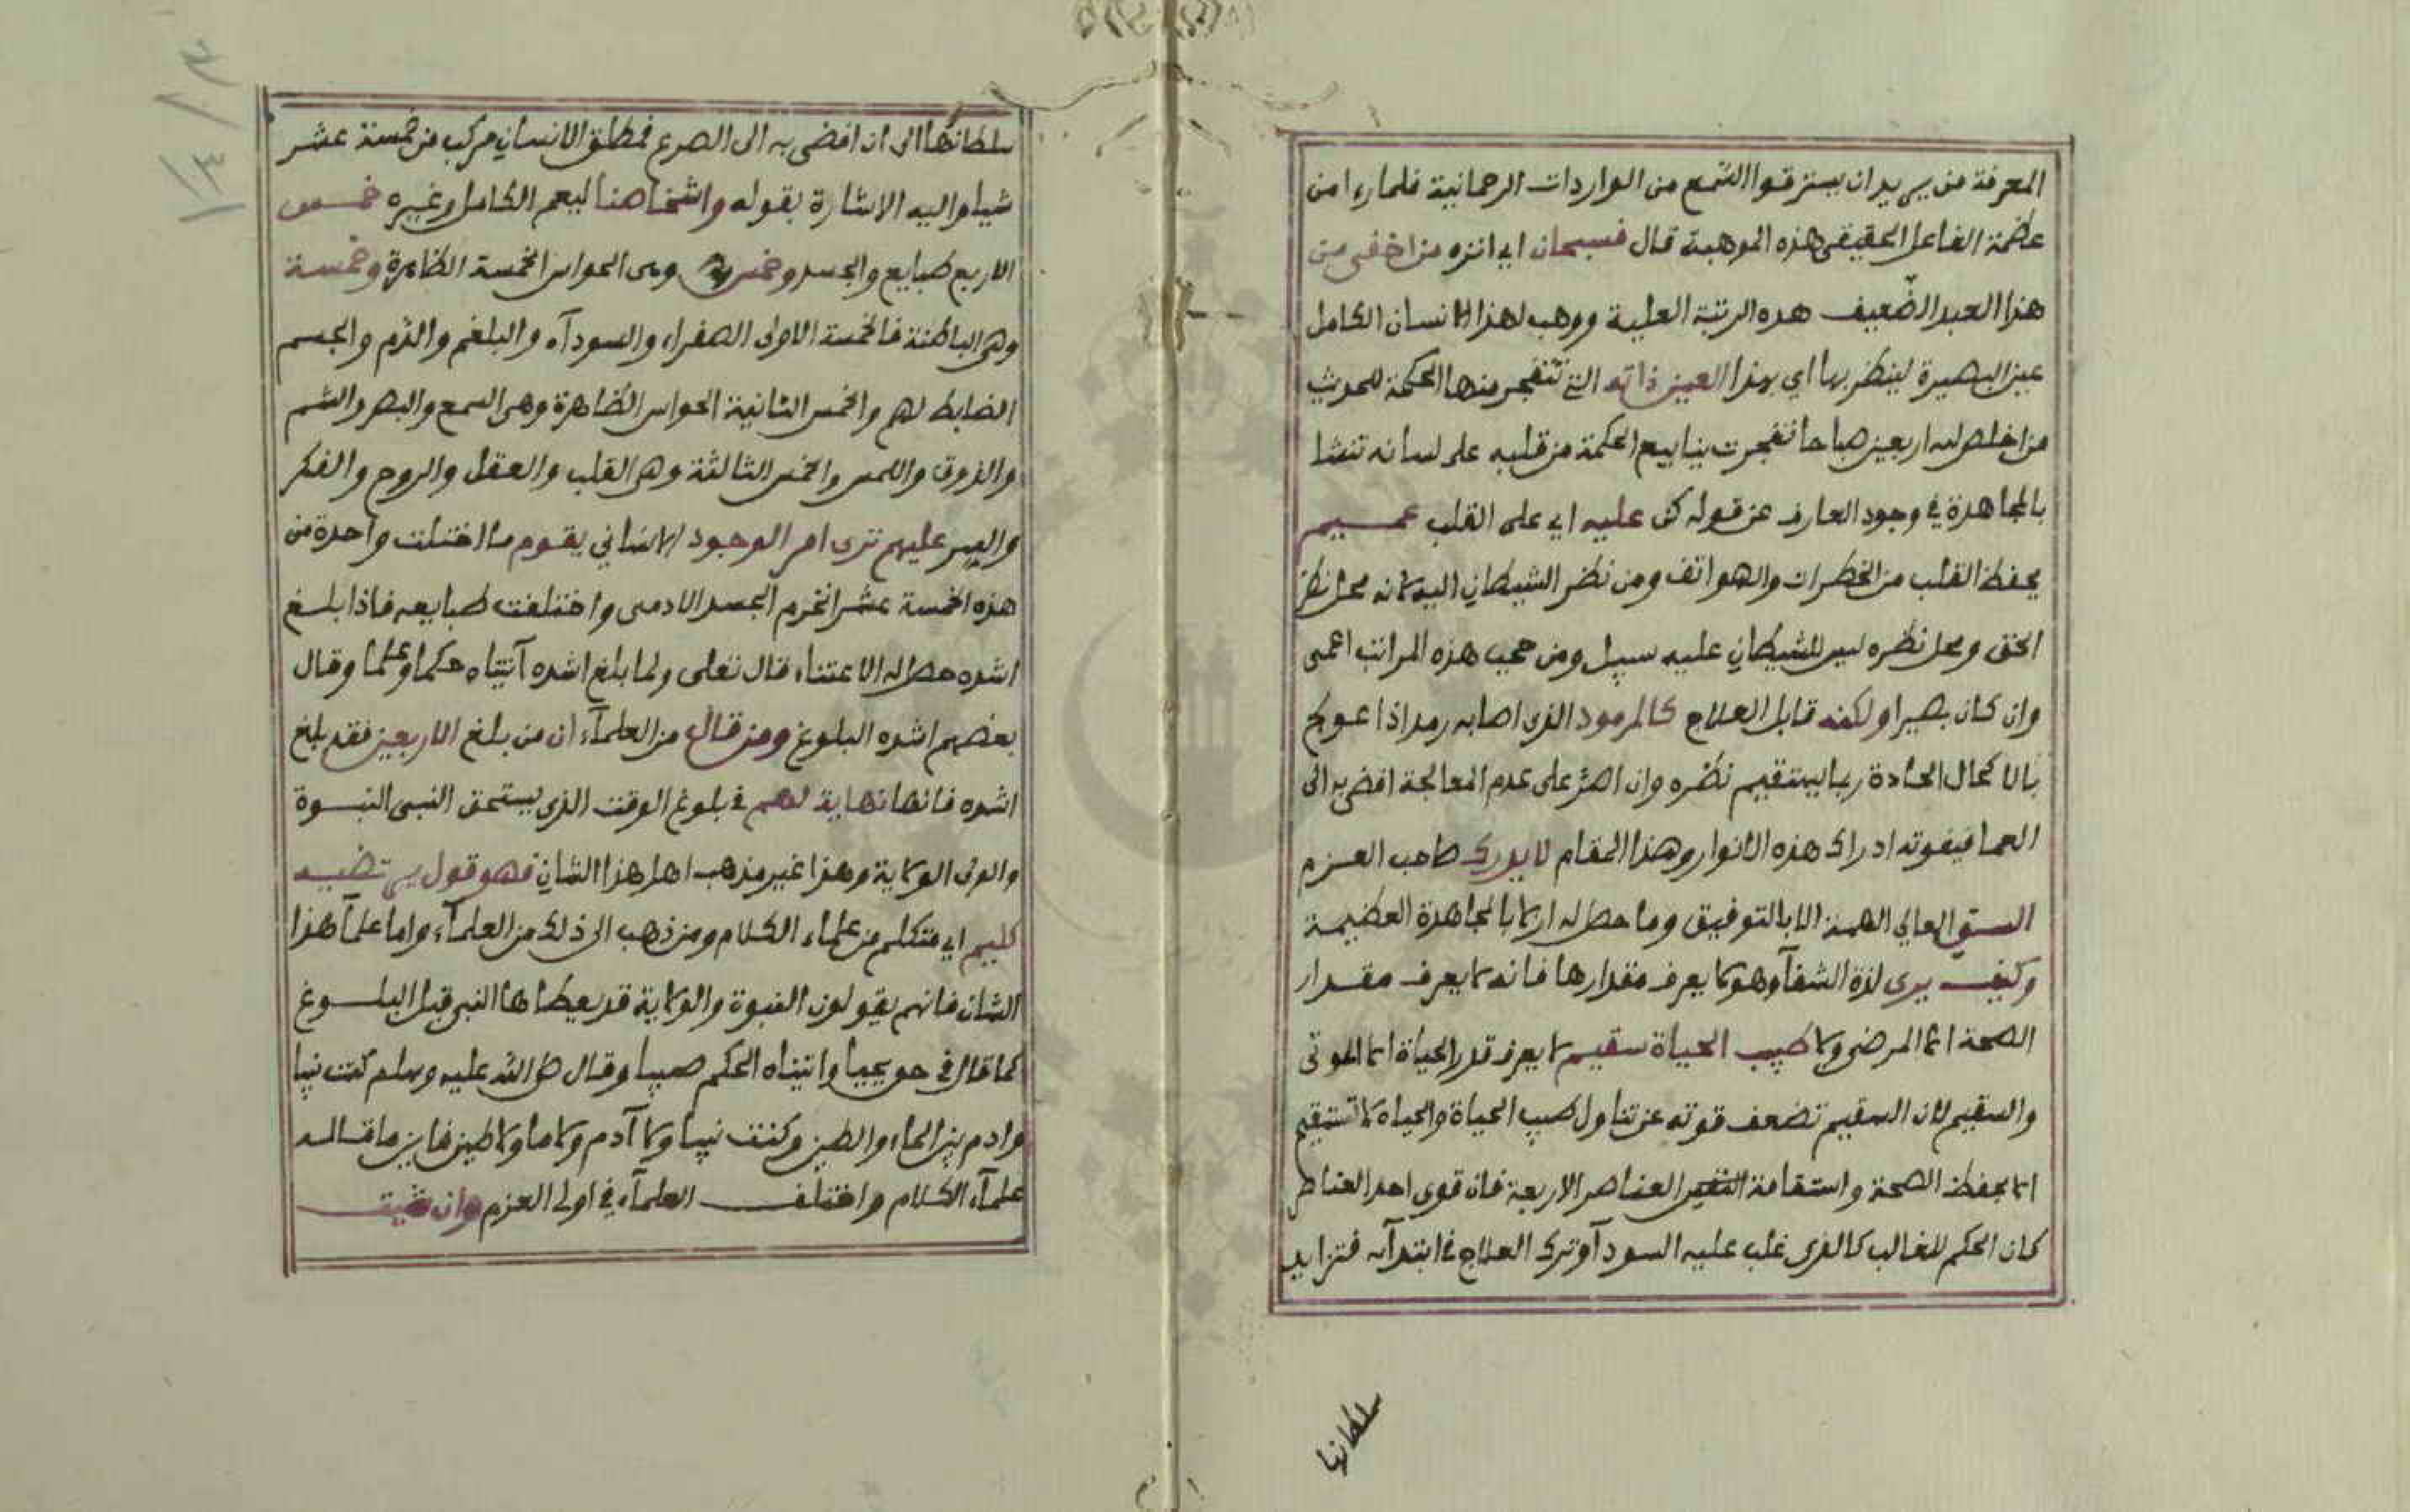 المعرفة من يريد ان يسترقوا السمع من الواردات الرحمانية فلما راء من
عظمة الفاعل الحقيقي هذه الموهبة قال فسبحان اي انزه من اخفى من
هذا العبد الضعيف هده الرتبة العلية ووهب لهذا الانسان الكامل
عين البصيرة لينظر بها اي بهذا العين ذاته التي تتفجر منها الحكمة للحديث
من اخلص لله اربعين صباحا تفجرت ينابيع الحكمة من قلبه على لسانه تنشا
بالمجاهدة في وجود العارف عن قوله كن عليه اي على القلب عميم
يحفظ القلب من الخطرات والهواتف ومن نظر الشيطان اليه لانه محل نظر
الحق ومحل نظره ليس للشيطان عليه سبيل ومن حجب هذه المراتب اعمى
وان كان بصيرا ولكنه قابل العلاج كالرمود الذي اصابه رمد اذا عولج
بالاكحال الحادة ربما يستقيم نظره وان اصر على عدم المعالجة افضى به الى
العما فيفوته ادراك هذه الانوار وهذا المقام لا يدرك صاحب العزم
العالي الهمة الا بالتوفيق وما حصل له الا بالمجاهدة العظيمة
وكيف يرى لذة الشفآ وهو لا يعرف مقدارها فانه لا يعرف مقدار
الصحة الا المرضى ولا طيب الحياة سقيم لا يعرف قدر الحياة الا الموتى
والسقيم لان السقيم تضعف قوته عن تناول طيب الحياة والحياه لا تستقيم
الا بحفظ الصحة واستقامة العناصر الاربعة فان قوى احد العناصر
كان الحكم للغالب كالذي غلب عليه السودآ وترك العلاج في ابتدآئه فتزايد
سلطانها
سلطانها الى ان افضى به الى الصرع فمطلق الانسان مركب من خمسة عشر
شيا واليه الاشارة بقوله واشخاصنا ليعم الكامل وغيره خمس
الاربع طبايع والجسد وخمس وهي الحواس الخمسة الظاهرة وخمسة
وهي الباطنة فالخمسة الاولى الصفراء والسودآء والبلغم والدم والجسم
الضابط لهم والخمس الثانية الحواس الظاهرة وهي السمع والبصر والشم
والذوق واللمس والخمس الثالثة وهي القلب والعقل والروح والفكر
والسر عليهم ترى امر الوجود الانساني يقوم ما اختلت واحدة من
هذه الخمسة عشر انخرم الجسد الادمي واختلفت طبايعه فاذا بلغ
اشده حصل له الاعتناء قال تعلى ولما بلغ اشده آتيناه حكما وعلما وقال
بعضهم اشده البلوغ ومن قال من العلمآء ان من بلغ الاربعين فقد بلغ
اشده فانها نهاية لهم في بلوغ الوقت الذي يستحق النبي النبوة
والولى الولاية وهذا غير مذهب اهل هذا الشان فهو قول يرتضيه
كليم اي متكلم من علماء الكلام ومن ذهب الى ذلك من العلمآء واما علمآ هذا
الشان فانهم يقولون النبوة والولاية قد يعطاها النبي قبل البلوغ
كما قال في حق يحيى وآتيناه الحكم صبيا وقال صلى الله عليه وسلم كنت نبيا
وادم بين الماء والطين وكنت نبيا ولا آدم ولا ما ولا طين فاين ما قاله
علمآء الكلام واختلف العلمآء في اولى العزم وان شيت